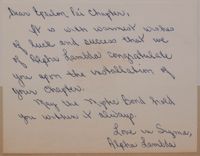 Dear Epsilon Psi Chapter,
It is with warmest wishes
of luck and success that we
of Alpha Lambda congratulate
you upon the installation of
your chapter.
May the Alpha Bond hold
you within it always.
Love in Sigma,
Alpha Lambda